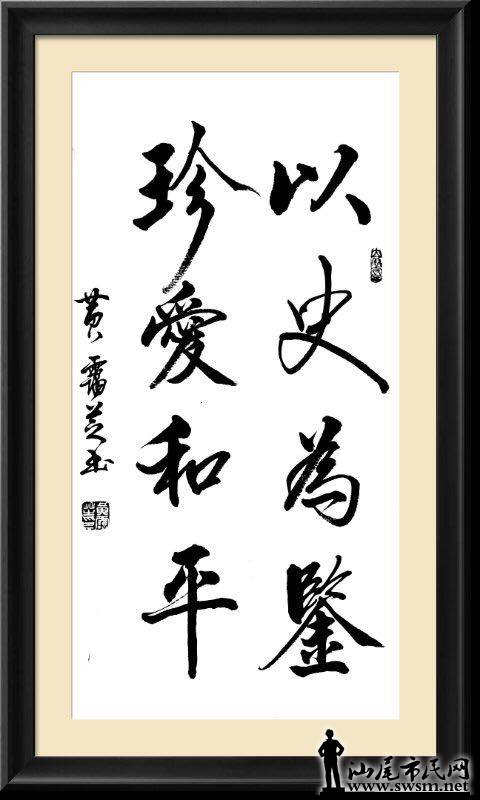 以史為鑒
珍愛和平
黄霭芝书
汕尾市民网
www.swsm.net